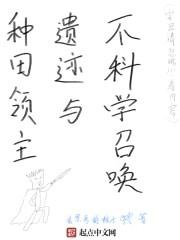 不科学召唤
遗迹与
种田领主
著
起点中文网